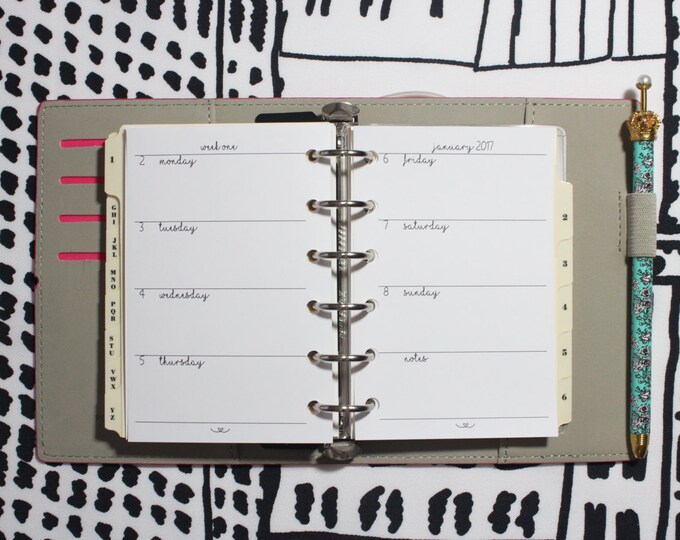 week one
2 monday
3 tuesday
4 wednesday
5 thursday
january 2017
6 friday
7 saturday
8 sunday
notes
1
GHI
JKL
MNO
PQR
STU
VWX
YZ
2
3
4
5
6